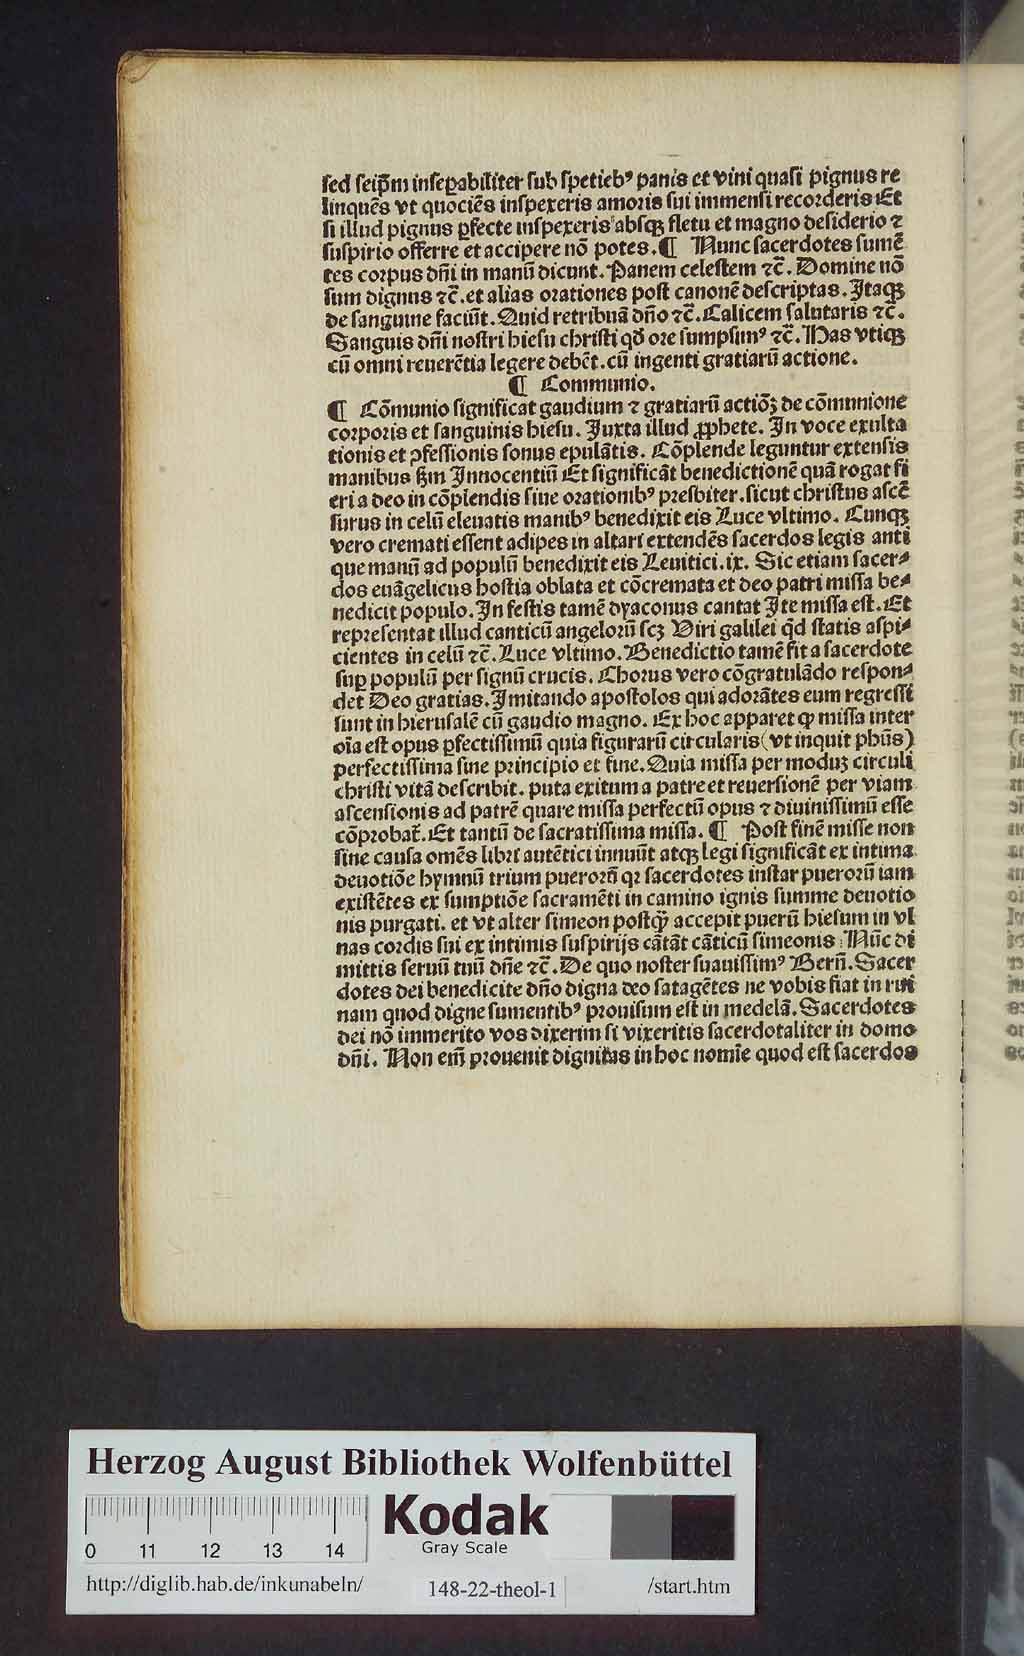 sed seip̄m inseꝑabiliter sub spetieb⁹ panis et vini quasi pignus re
linquēs vt quociēs inspexeris amoris sui immensi recorderis Et
si illud pignus ꝑfecte inspexeris absqꝫ fletu et magno desiderio ⁊
suspirio offerre et accipere nō potes. ¶ Nunc sacerdotes sumē
tes corpus dn̄i in manū dicunt. Panem celestem ⁊c̄. Domine nō
sum dignus ⁊c̄. et alias orationes post canonē descriptas. Itaqꝫ
de sanguine faciūt. Quid retribuā dn̄o ⁊c̄. Calicem salutaris ⁊c̄.
Sanguis dn̄i nostri hiesu christi qđ ore sumpsim⁹ ⁊c̄. Has vtiqꝫ
cū omni reuerētia legere debēt. cū ingenti gratiarū actione.
¶ Communio.
¶ Cōmunio significat gaudium ⁊ gratiarū actiōꝫ de cōmunione
corporis et sanguinis hiesu. Juxta illud ꝓphete. In voce exulta
tionis et ꝯfessionis sonus epulātis. Cōplende leguntur extensis
manibus ẜm Innocentiū Et significāt benedictionē quā rogat fi
eri a deo in cōplendis siue orationib⁹ presbiter. sicut christus ascē
surus in celū eleuatis manib⁹ benedixit eis Luce vltimo. Cunqꝫ
vero cremati essent adipes in altari extendēs sacerdos legis anti
que manū ad populū benedixit eis Leuitici. ix. Sic etiam sacer⸗
dos euāgelicus hostia oblata et cōcremata et deo patri missa be⸗
nedicit populo. In festis tamē dyaconus cantat Ite missa est. Et
representat illud canticū angelorū scꝫ Viri galilei qͥd statis aspi⸗
cientes in celū ⁊c̄. Luce vltimo. Benedictio tamē fit a sacerdote
suꝑ populū per signū crucis. Chorus vero cōgratulādo respon⸗
det Deo gratias. Imitando apostolos qui adorātes eum regressi
sunt in hierusalē cū gaudio magno. Ex hoc apparet ꝙ missa inter
oīa est opus ꝑfectissimū quia figurarū circularis (vt inquit phūs)
perfectissima sine principio et fine. Quia missa per moduꝫ circuli
christi vitā describit. puta exitum a patre et reuersionē per viam
ascensionis ad patrē quare missa perfectū opus ⁊ diuinissimū esse
cōprobat̄. Et tantū de sacratissima missa. ¶ Post finē misse non
sine causa omēs libri autētici innuūt atqꝫ legi significāt ex intima
deuotiōe hymnū trium puerorū qꝛ sacerdotes instar puerorū iam
existētes ex sumptiōe sacramēti in camino ignis summe deuotio
nis purgati. et vt alter simeon postqꝫ̄ accepit puerū hiesum in vl
nas cordis sui ex intimis suspirijs cātāt cāticū simeonis : Nūc di
mittis seruū tuū dn̄e ⁊c̄. De quo noster suauissim⁹ Bern̄. Sacer
dotes dei benedicite dn̄o digna deo satagētes ne vobis fiat in rui
nam quod digne sumentib⁹ prouisum est in medelā. Sacerdotes
dei nō immerito vos dixerim si vixeritis sacerdotaliter in domo
dn̄i. Non em̄ prouenit dignitas in hoc nomīe quod est sacerdos
Herzog August Bibliothek Wolfenbüttel
0 11 12 13 14
Kodak
Gray Scale
http://diglib.hab.de/inkunabeln/ 148-22-theol-1 /start.htm